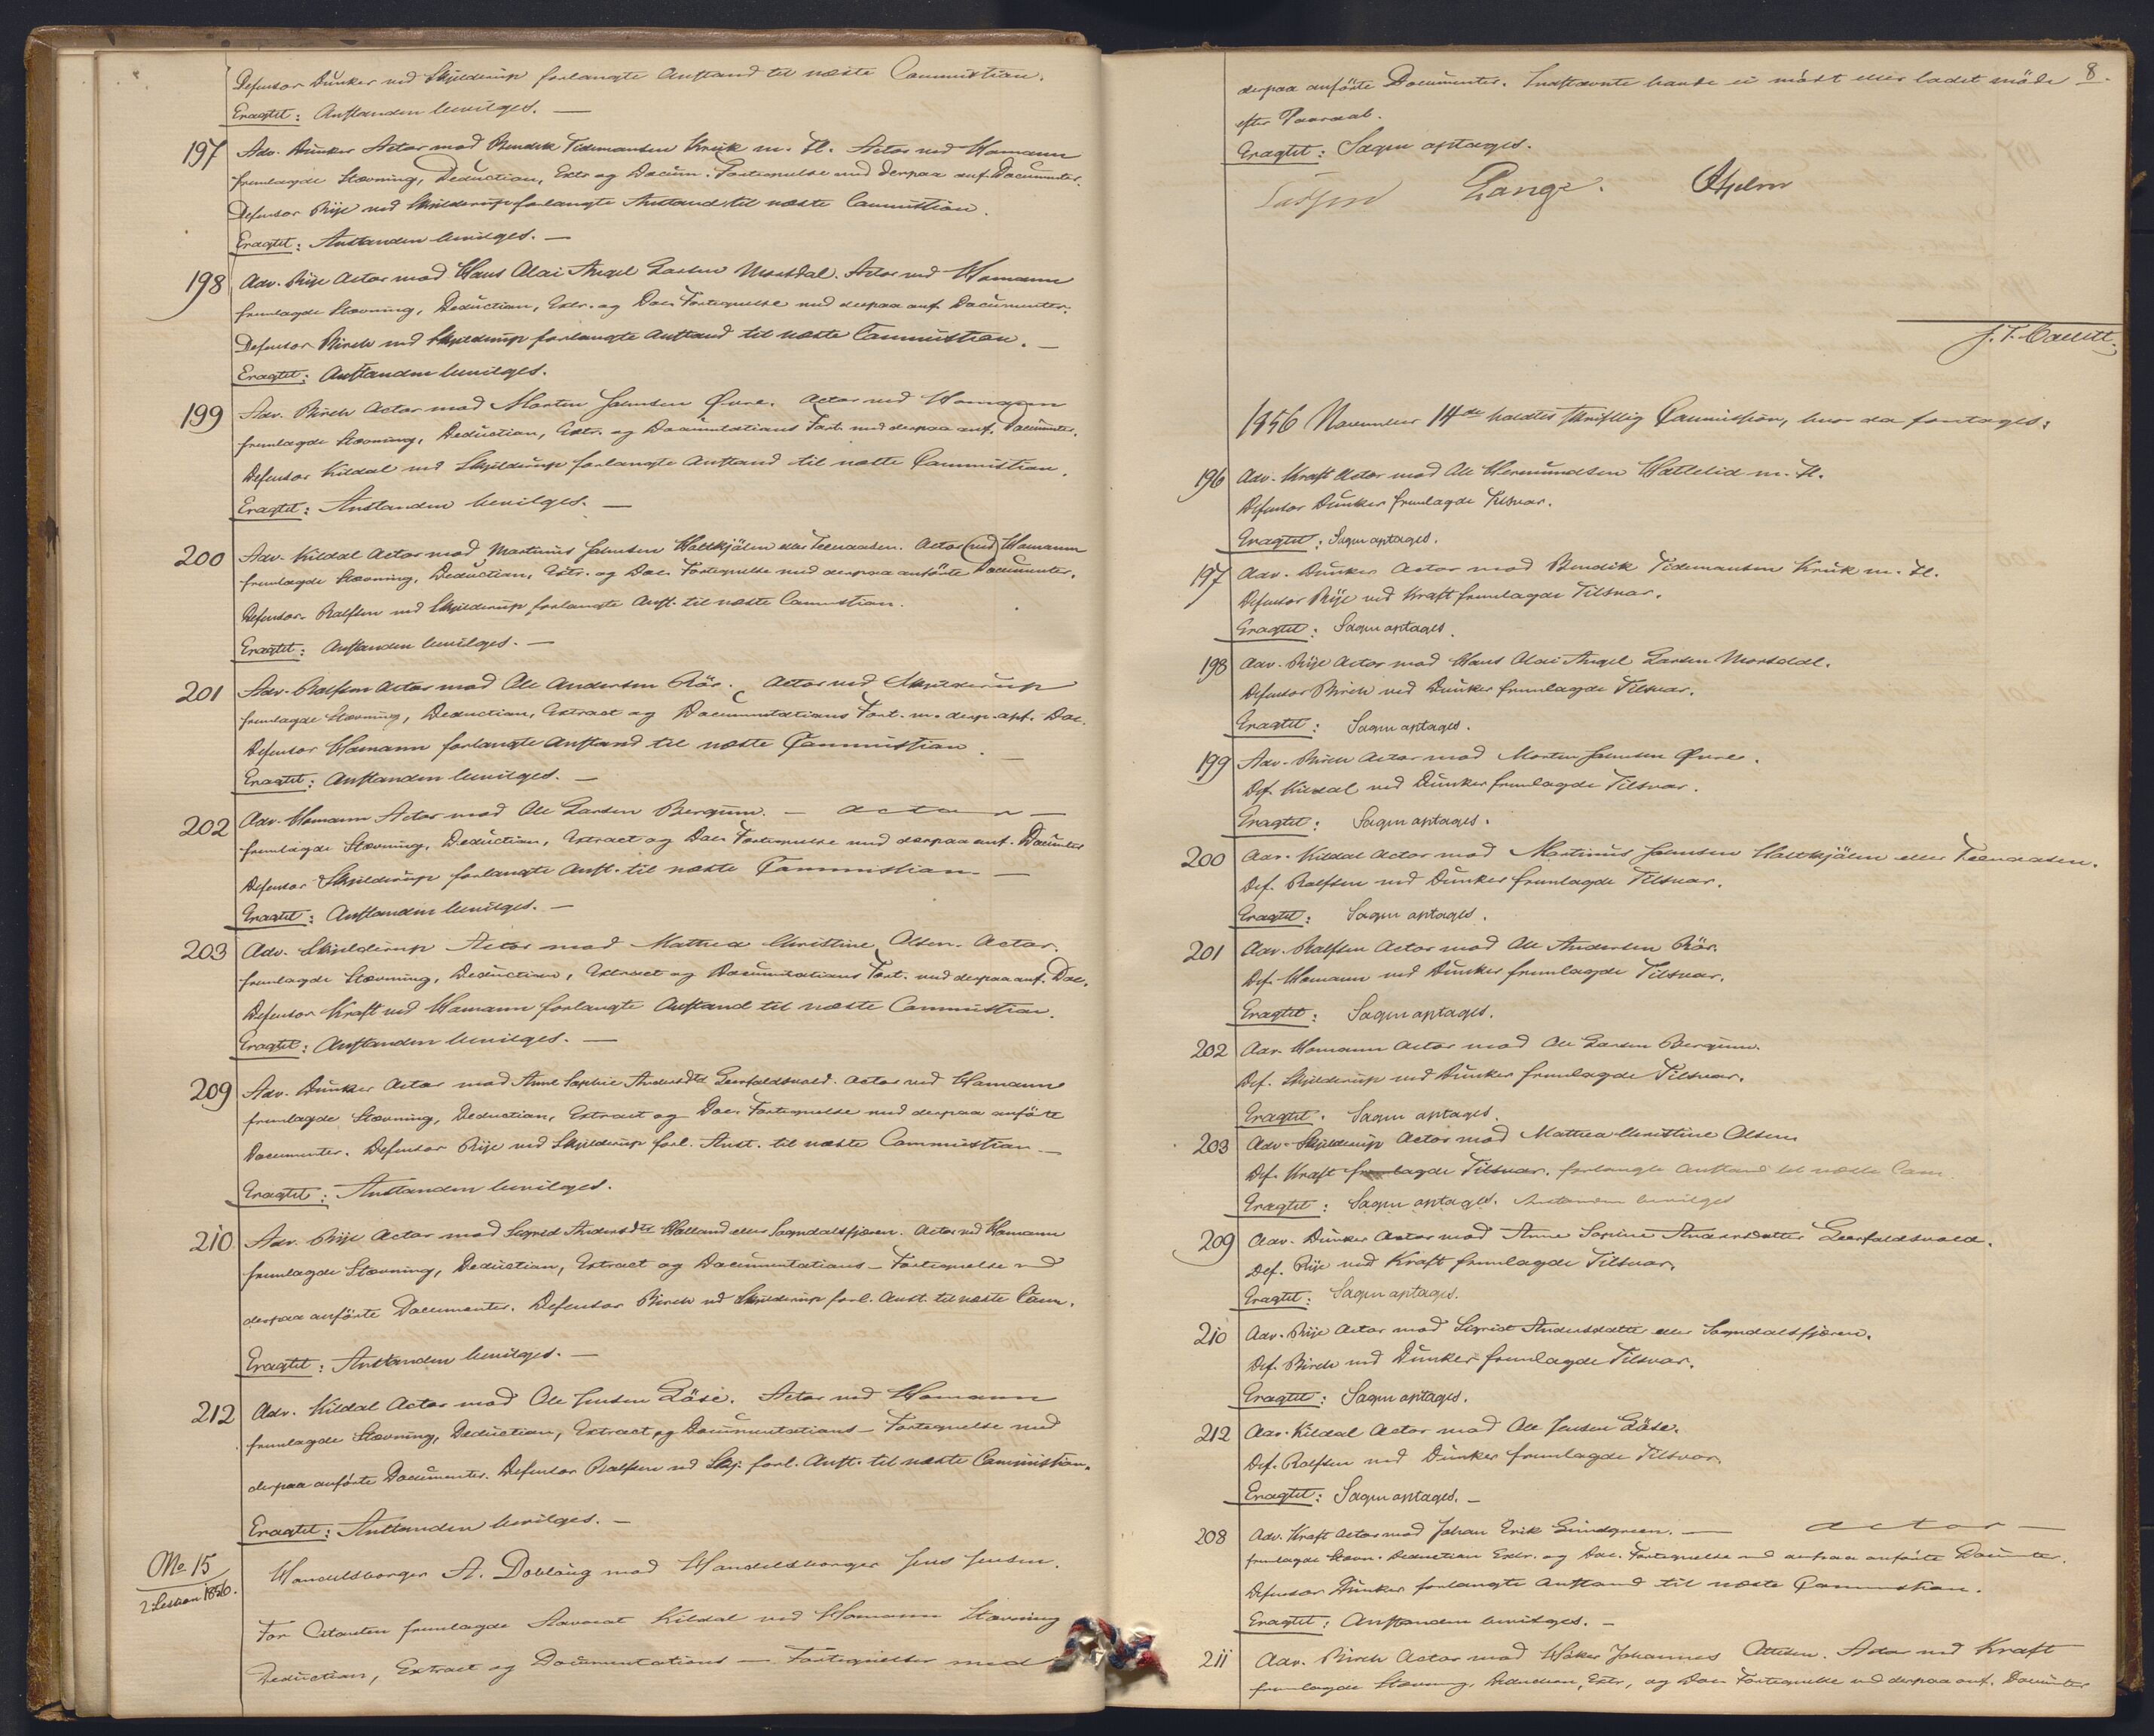 Defensor Dunker ved Skjelderup forlangte Anstand til næste Commission.
Eragtet: Anstanden bevilges. —
197 Adv. Dunker Actor mod Bendik Tidemandsen Kruk m. Fl. Actor ved Homann
fremlagde Stævning, Deduction, Extr. og Docum. Fortegnelse med derpaa anf. Documenter.
Defensor Rije ved Skjelderup forlangte Anstand til næste Commission.
Eragtet: Anstanden bevilges. —
198 Adv. Rije Actor mod Hans Olai Angel Larsen Morsdal. Actor ved Homann
fremlagde Stævning, Deduction, Extr. og Doc. Fortegnelse med derpaa anf. Documenter.
Defensor Birch ved Skjelderup forlangte Anstand til næste Commission. —
Eragtet: Anstanden bevilges.
199 Adv. Birch Actor mod Morten Johnsen Øvre. Actor ved Homann
fremlagde Stævning, Deduction, Extr. og Documentations Fort. med derpaa anf. Documenter.
Defensor Kildal ved Skjelderup forlangte Anstand til næste Commission.
Eragtet: Anstanden bevilges. —
200 Adv. Kildal Actor mod Martinus Johnsen Holtkjølen eller Teenaasen. Actor (ved) Homann
fremlagde Stævning, Deduction, Extr. og Doc. Fortegnelse med derpaa anførte Documenter.
Defensor Rolfsen ved Skjelderup forlangte Anst. til næste Commission.
Eragtet: Anstanden bevilges. —
201 Adv. Rolfsen Actor mod Ole Andersen Rör. Actor ved Skjelderup
fremlagde Stævning, Deduction, Extract og Documentations Fort. m. derp. anf. Doc.
Defensor Homann forlangte Anstand til næste Commission.
Eragtet: Anstanden bevilges. —
202 Adv. Homann Actor mod Ole Larsen Bergum. — Actor —
fremlagde Stævning, Deduction, Extract og Doc. Fortegnelse med derpaa anf. Documenter
Defensor Skjelderup forlangte Anst. til næste Commission. —
Eragtet: Anstanden bevilges. —
203 Adv. Skjelderup Actor mod Mathea Christine Olsen. Actor.
fremlagde Stævning, Deduction, Extract og Documentations Fort. med derpaa anf. Doc.
Defensor Kraft ved Homann forlangte Anstand til næste Commission.
Eragtet: Anstanden bevilges. —
209 Adv. Dunker Actor mod Anne Sophie Andersdtr Leerfaldsvald. Actor ved Homann
fremlagde Stævning, Deduction, Extract og Doc. Fortegnelse med derpaa anförte
Documenter. Defensor Rije ved Skjelderup forl. Anst. til næste Commission. —
Eragtet: Anstanden bevilges.
210 Adv. Rije Actor mod Sigrid Andersdtr Holland eller Sogndalsfjæren. Actor ved Homann
fremlagde Stævning, Deduction, Extract og Documentations-Fortegnelse med
derpaa anförte Documenter. Defensor Birch ved Skjelderup forl. Anst. til næste Com.
Eragtet: Anstanden bevilges. —
212 Adv. Kildal Actor mod Ole Jensen Läse. Actor ved Homann
fremlagde Stævning, Deduction, Extract og Documentations-Fortegnelse med
derpaa anförte Documenter. Defensor Rolfsen ved Skj. forl. Anst. til næste Commission.
Eragtet: Anstanden bevilges. —
No 15
2 Session 1856.
Handelsborger A. Dobloug mod Handelsborger Jens Jensen.
For Citanten fremlagde Advocat Kildal ved Homann Stævning
Deduction, Extract og Documentations-Fortegnelse med
8.
derpaa anförte Documenter. Indstævnte havde ei mödt eller ladet möde
efter Paaraab.
Eragtet: Sagen optages.
Lange.
1856 November 14de holdtes skriftlig Commission, hvor da foretages:
196 Adv. Kraft Actor mod Ole Hermundsen Hatlelid m. Fl.
Defensor Dunker fremlagde Tilsvar.
Eragtet: Sagen optages.
197 Adv. Dunker Actor mod Bendik Tidemansen Kruk m. Fl.
Defensor Rije ved Kraft fremlagde Tilsvar.
Eragtet: Sagen optages.
198 Adv. Rije Actor mod Hans Olai Angel Larsen Morsdal.
Defensor Birch ved Dunker fremlagde Tilsvar.
Eragtet: Sagen optages.
199 Adv. Birch Actor mod Morten Johnsen Øvre.
Def. Kildal ved Dunker fremlagde Tilsvar.
Eragtet: Sagen optages.
200 Adv. Kildal Actor mod Martinus Johnsen Holtkjølen eller Teenaasen.
Def. Rolfsen ved Dunker fremlagde Tilsvar.
Eragtet: Sagen optages.
201 Adv. Rolfsen Actor mod Ole Andersen Rör.
Def. Homann ved Dunker fremlagde Tilsvar.
Eragtet: Sagen optages.
202 Adv. Homann Actor mod Ole Larsen Bergum.
Def. Skjelderup ved Dunker fremlagde Tilsvar.
Eragtet: Sagen optages.
203 Adv. Skjelderup Actor mod Mathea Christine Olsen
Def. Kraft fremlagde Tilsvar. forlangte Anstand til næste Com
Eragtet: Sagen optages. Anstanden bevilges
209 Adv. Dunker Actor mod Anne Sophie Andersdatter Leerfaldsvald.
Def. Rije ved Kraft fremlagde Tilsvar.
Eragtet: Sagen optages.
210 Adv. Rije Actor mod Sigrid Andersdatter eller Sogndalsfjæren.
Def. Birch ved Dunker fremlagde Tilsvar.
Eragtet: Sagen optages.
212 Adv. Kildal Actor mod Ole Jensen Läse.
Def. Rolfsen ved Dunker fremlagde Tilsvar.
Eragtet: Sagen optages. —
208 Adv. Kraft Actor mod Johan Erik Lindgreen. — Actor —
fremlagde Stævn. Deduction Extr. og Doc. Fortegnelse med derpaa anförte Documter.
Defensor Dunker forlangte Anstand til næste Commission.
Eragtet: Anstanden bevilges. —
211 Adv. Birch Actor mod Johannes Ottesen. Actor ved Kraft
fremlagde Stævning, Deduction, Extr. og Doc. Fortegnelse med derpaa anf. Documter